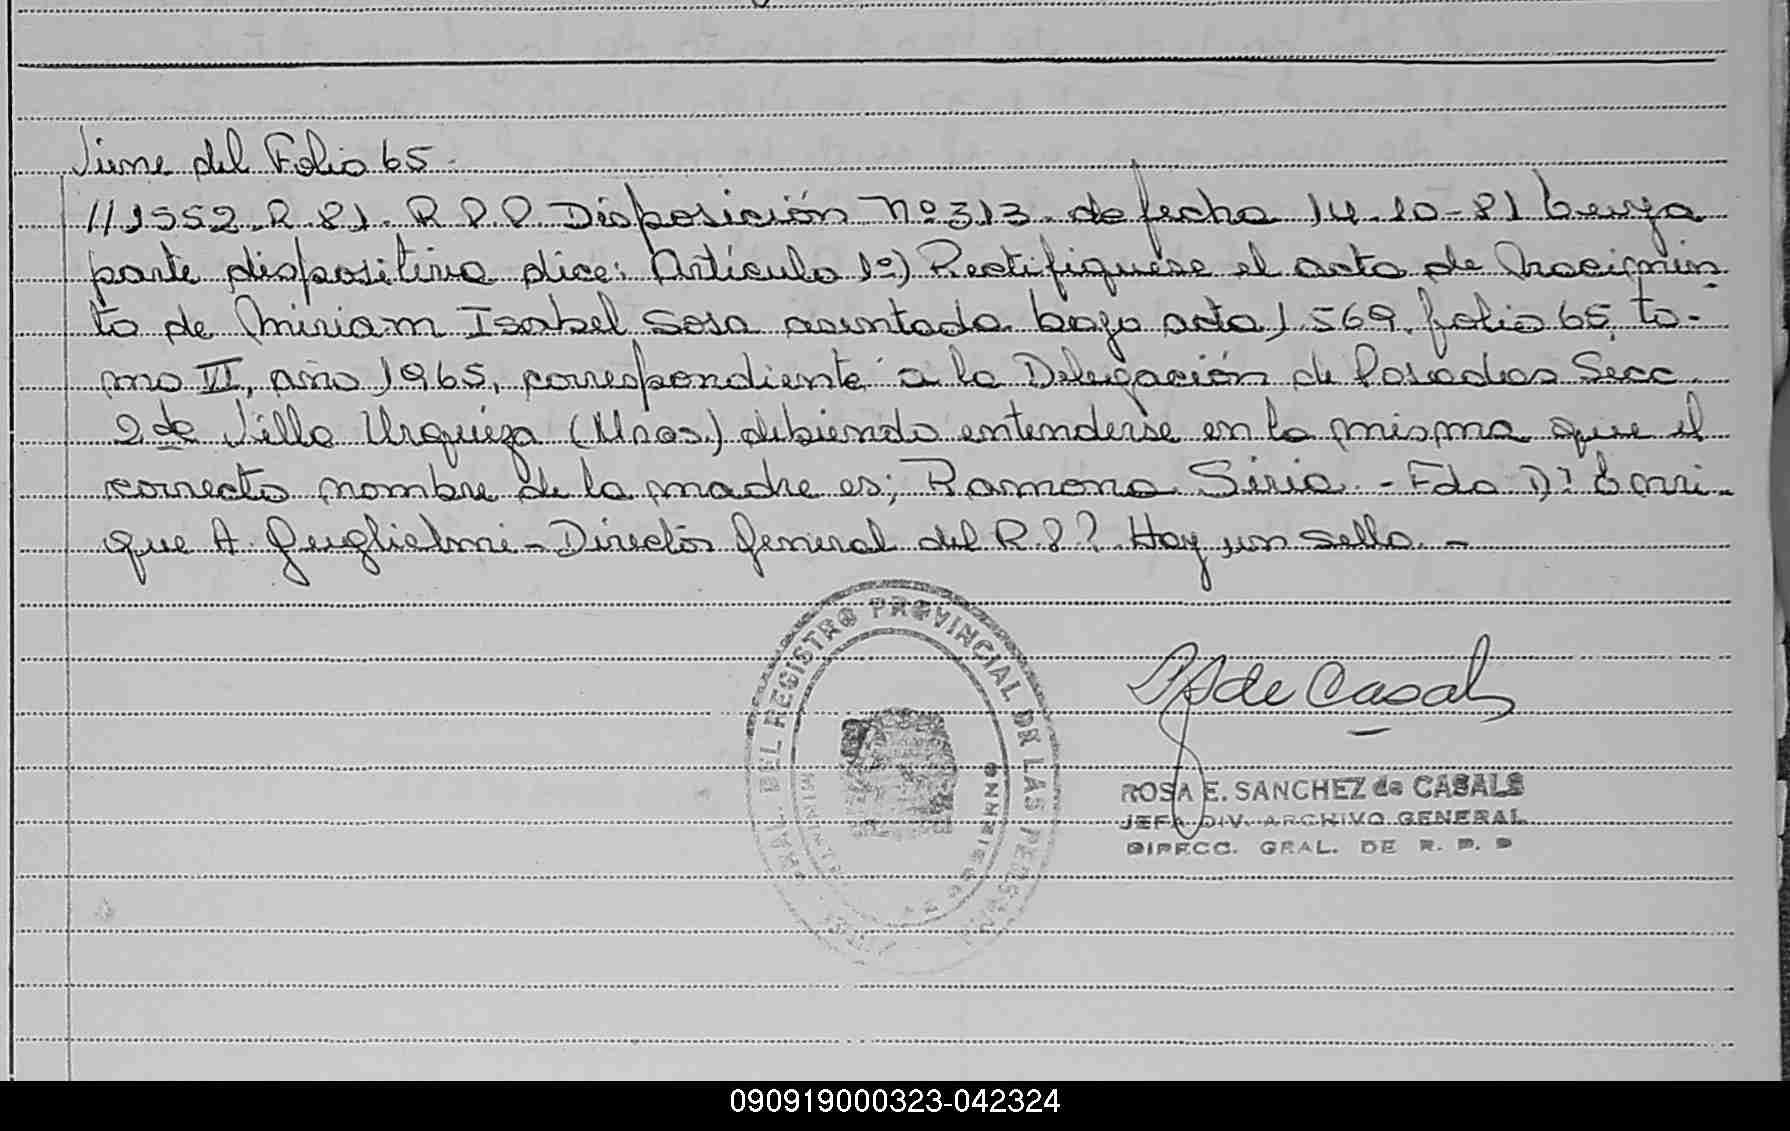 Viene del Folio 65.
//1552.R.81. R P P Disposición Nº 313. de fecha 14.10-81 cuya
parte dispositiva dice: Artículo 1º) Rectifiquese el acta de Nacimien
to de Miriam Isabel Sosa asentada bajo acta 1.569. folio 65, to-
mo VI, año 1965, correspondiente a la Delegación de Posadas Secc.
2da Villa Urquiza (Mnes.) debiendo entenderse en la misma que el
correcto nombre de la madre es; Ramona Siria. - Fdo Dº Enri-
que A. Guglielmi - Director General del R P P. Hay un sello. -
GRAL. DEL REGISTRO PROVINCIAL DE LAS PERSONAS
GOBIERNO
de Casals
ROSA E. SANCHEZ de CASALS
JEFA DIV. ARCHIVO GENERAL
DIRECC. GRAL. DE R. P. P
090919000323-042324